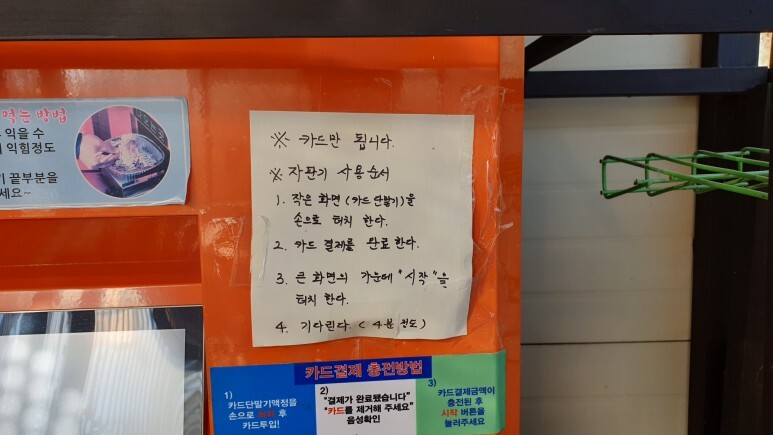 먹는 방법
익을 수
익힘정도
끝부분을
세요~
※ 카드만 됩니다.
※ 자판기 사용순서
1. 작은 화면(카드 단말기)을
손으로 터치 한다.
2. 카드 결제를 완료한다.
3. 큰 화면의 가운데 "시작"을
터치 한다.
4. 기다린다 (4분 정도)
카드결제 충전방법
1)
카드단말기액정을
손으로 터치 후
카드투입!
2)
"결제가 완료됐습니다"
"카드를 제거해 주세요"
음성확인
3)
카드결제금액이
충전된 후
시작 버튼을
눌러주세요